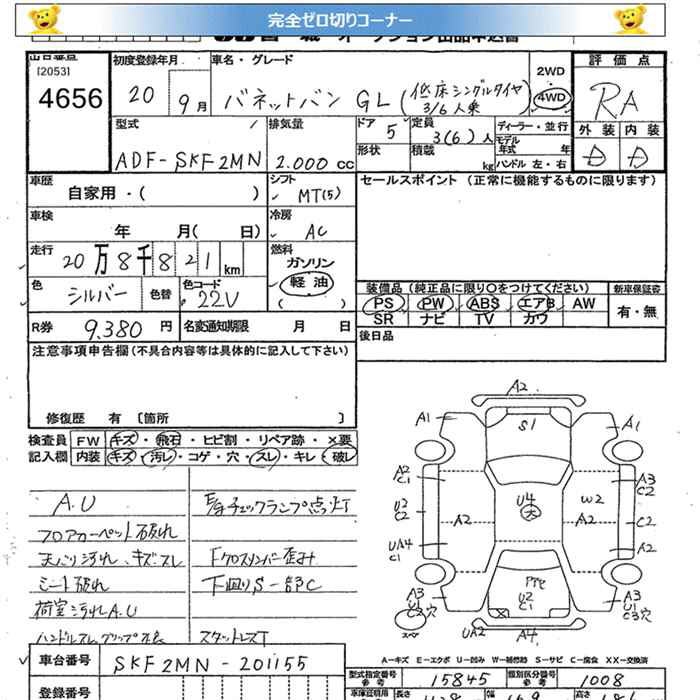 完全ゼロ切りコーナー
[2053]
4656
初度登録年月
20 9月
車名・グレード
バネットバン GL (低床シングルタイヤ 3/6人乗
2WD
4WD
評価点
RA
外装 内装
D D
型式
ADF-SKF2MN
排気量
2.000 cc
ドア
5
定員
3(6)人
形状
積載
kg
ディーラー・並行
モデル年式 年
ハンドル 左・右
車歴
自家用・( )
シフト
MT(5)
セールスポイント (正常に機能するものに限ります)
車検
年 月( 日)
冷房
AC
走行
20万8千821km
燃料
ガソリン
軽油
( )
色
シルバー
色替
色コード
22V
装備品(純正品に限り○をつけてください)
新車保証書
PS PW ABS エアB AW
SR ナビ TV カワ
有・無
R券
9,380円
名変通知期限 月 日
後日品
注意事項申告欄(不具合内容等は具体的に記入して下さい)
修復歴 有 [箇所 ]
検査員記入欄
FW キズ・飛石・ヒビ割・リペア跡・×要
内装 キズ・汚レ・コゲ・穴・スレ・キレ・破レ
A.U
フロアカーペット破れ
天バリ汚れ、キズスレ
シート破れ
荷室汚れA.U
チェックランプ点灯
Fクロスメンバー歪み
下廻りS一部C
スタットレスT
A2
A1 S1 A1
A2 C1
U4 大
W2
A3 C2
U2 C2
A2
A2
C2
UA4 C1
A2
A3 U1 C2穴
U2 C1
A3 U1 C3穴
スペア
UA2
A4
A-キズ E-エクボ U-凹み W-補修跡 S-サビ C-腐食 XX-交換済
車台番号
SKF2MN-201155
型式指定番号
参考
15845
類別区分番号
参考
1008
登録番号